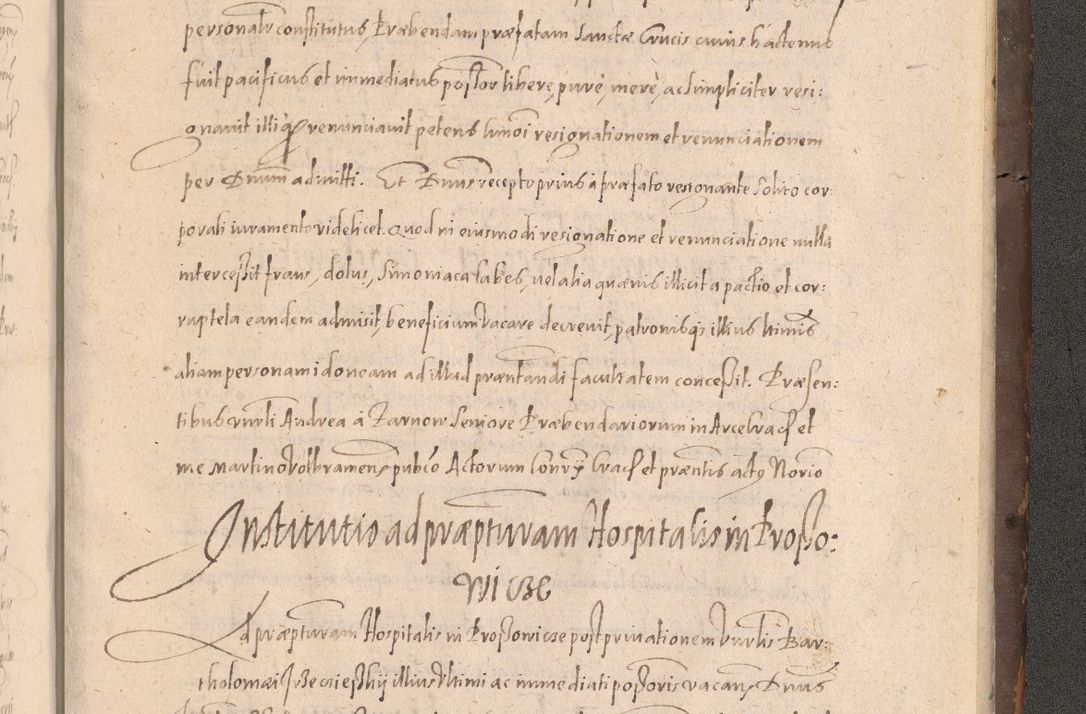 personalr constitutus, Præbendam præfatam Sanctæ Crucis cuius hactenus
fuit pacificus et immediatus possor libere, purè, merè, ac simpliciter resi:
gnavit illiqȝ renunciavit petens hmoi resignationem et renunciationem
per Dnum admitti. Et Dnus recepto prius à præfato resignante solito cor
porali iuramento videlicet. Quod in eiusmodi resignatione et renunciatione nulla
intercessit fraus, dolus, Simoniaca labes, vel alia quævis illicita pactio et cor:
ruptela eandem admisit beneficium vacare decrevit, patronisqȝ illius ltimis
aliam personam idoneam ad illud præntandi facultatem concessit. Præsen:
tibus vnrli Andrea à Tarnow Seniore Præbendariorum in Arce Crac et
me Martino Volbramens pubco Actorum Conrȳ Crac et præntis actȝ Norio
Institutio ad præpturam Hospitalis in Prosso:
wicze
Ad præpturam Hospitalis in Prossowicze post privationem Vnrlis Bar:
tholomæi Irzeczieskij illius vltimi ac immediati possoris vacans Dnus